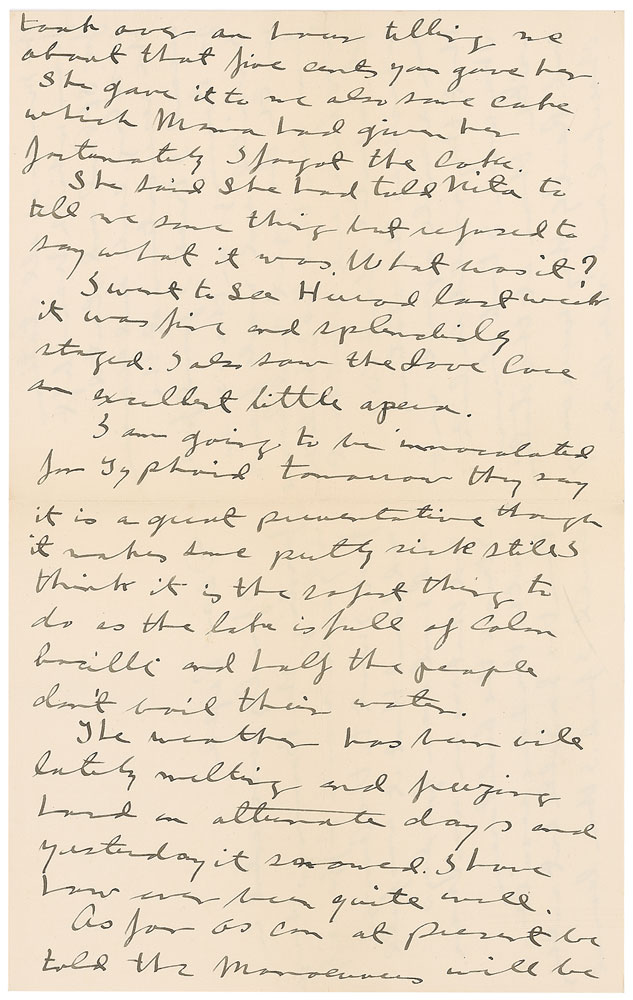 took over an hour telling me
about that five cents you gave her.
She gave it to me also some cake
which Mama had given her
fortunately I forgot the cake.
She said she had told Nita to
tell me some thing but refused to
say what it was. What was it?
I went to see Herod last week
it was fine and splendidly
staged. I also saw the Love Cure
an excellent little opera.
I am going to be innoculated
for Typhoid tomorrow they say
it is a great preventative though
it makes some pretty sick still I
think it is the safest thing to
do as the lake is full of Colon
bacilli and half the people
don't boil their water.
The weather has been vile
lately melting and freezing
hard on alternate days and
yesterday it snowed. I have
how ever been quite well.
As far as can at present be
told the Manoeuvers will be